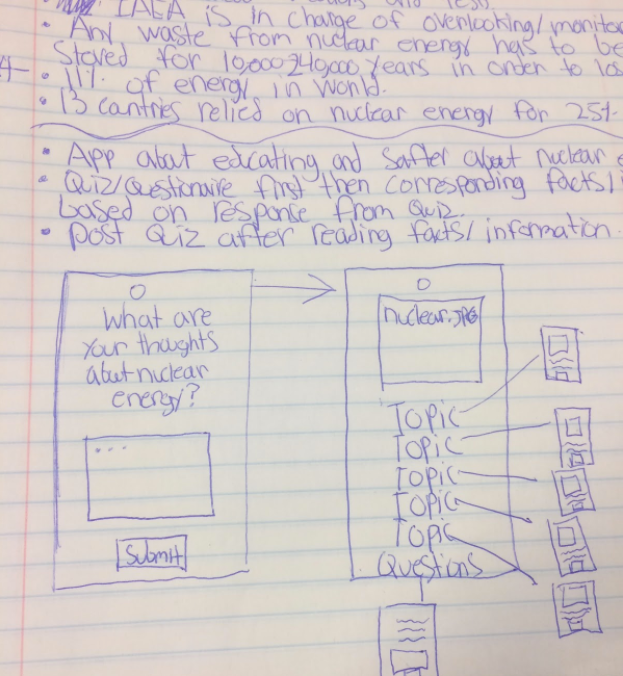 IAEA is in charge of overlooking/monito
• Any waste from nuclear energy has to be
Stored for 10,000-240,000 years in order to los
• 11% of energy in world.
• 13 cantries relied on nuclear energy for 25%
• App about educating and safter about nuclear e
• Quiz/Questionaire first then corresponding facts/
based on response from Quiz.
• Post Quiz after reading facts/information.
What are
your thoughts
about nuclear
energy?
...
Submit
nuclear.JPG
Topic
Topic
Topic
Topic
Topic
Questions